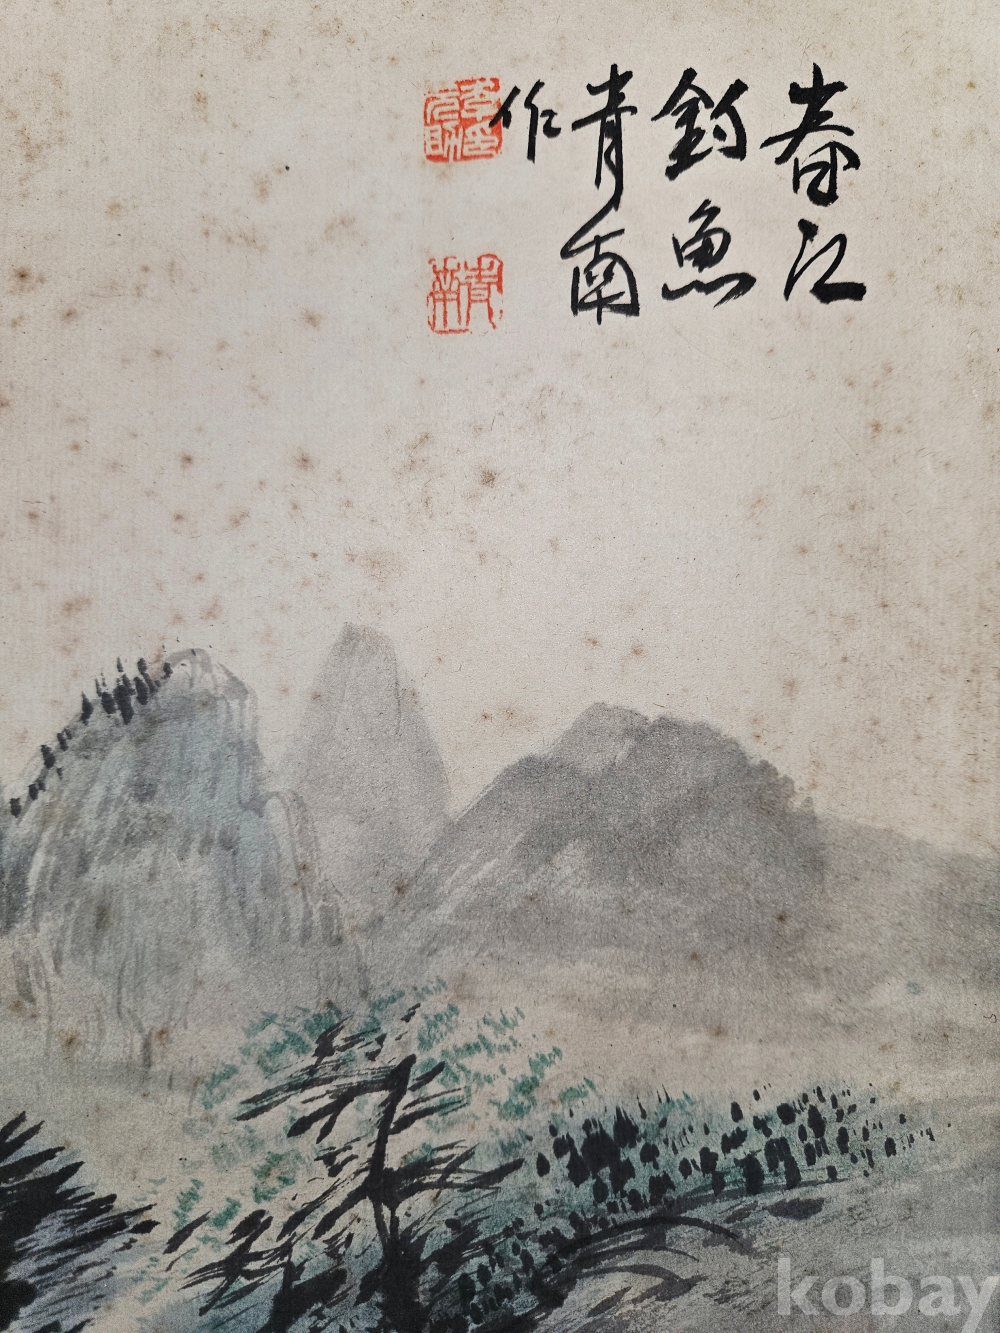 春江
釣魚
青南
作
青南
kobay